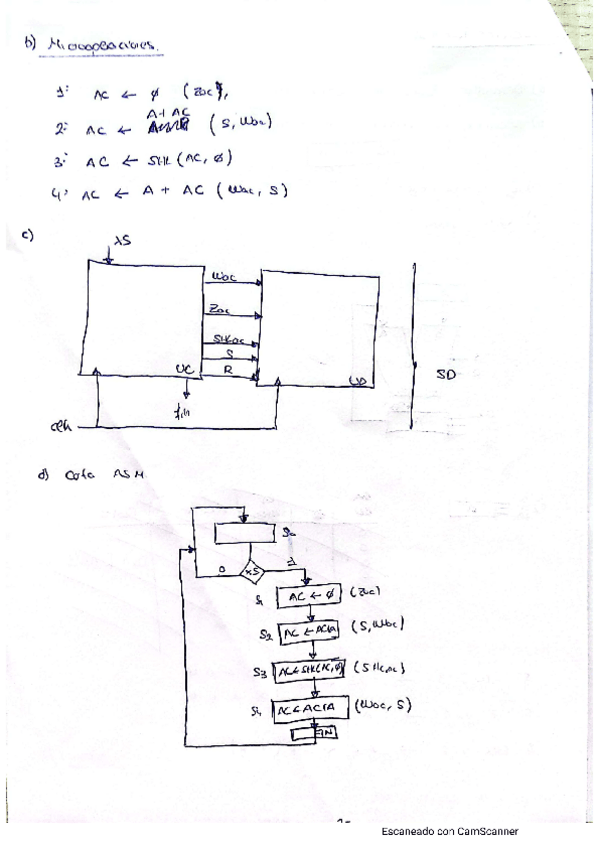 b) Microoperaciones.
1: AC ← ∅ (Zac),
A+AC
2: AC ← (S, Wac)
3: AC ← SHL (AC, ∅)
4: AC ← A + AC (Wac, S)
c)
XS
Wac
Zac
SHLac
S
R
UC
UD
SD
fin
clk
d) Carta ASM
S0
0
XS
1
S1 AC ← ∅ (Zac)
S2 AC ← AC+A (S, Wac)
S3 AC ← SHL(AC, ∅) (SHLac)
S4 AC ← AC+A (Wac, S)
FIN
Escaneado con CamScanner